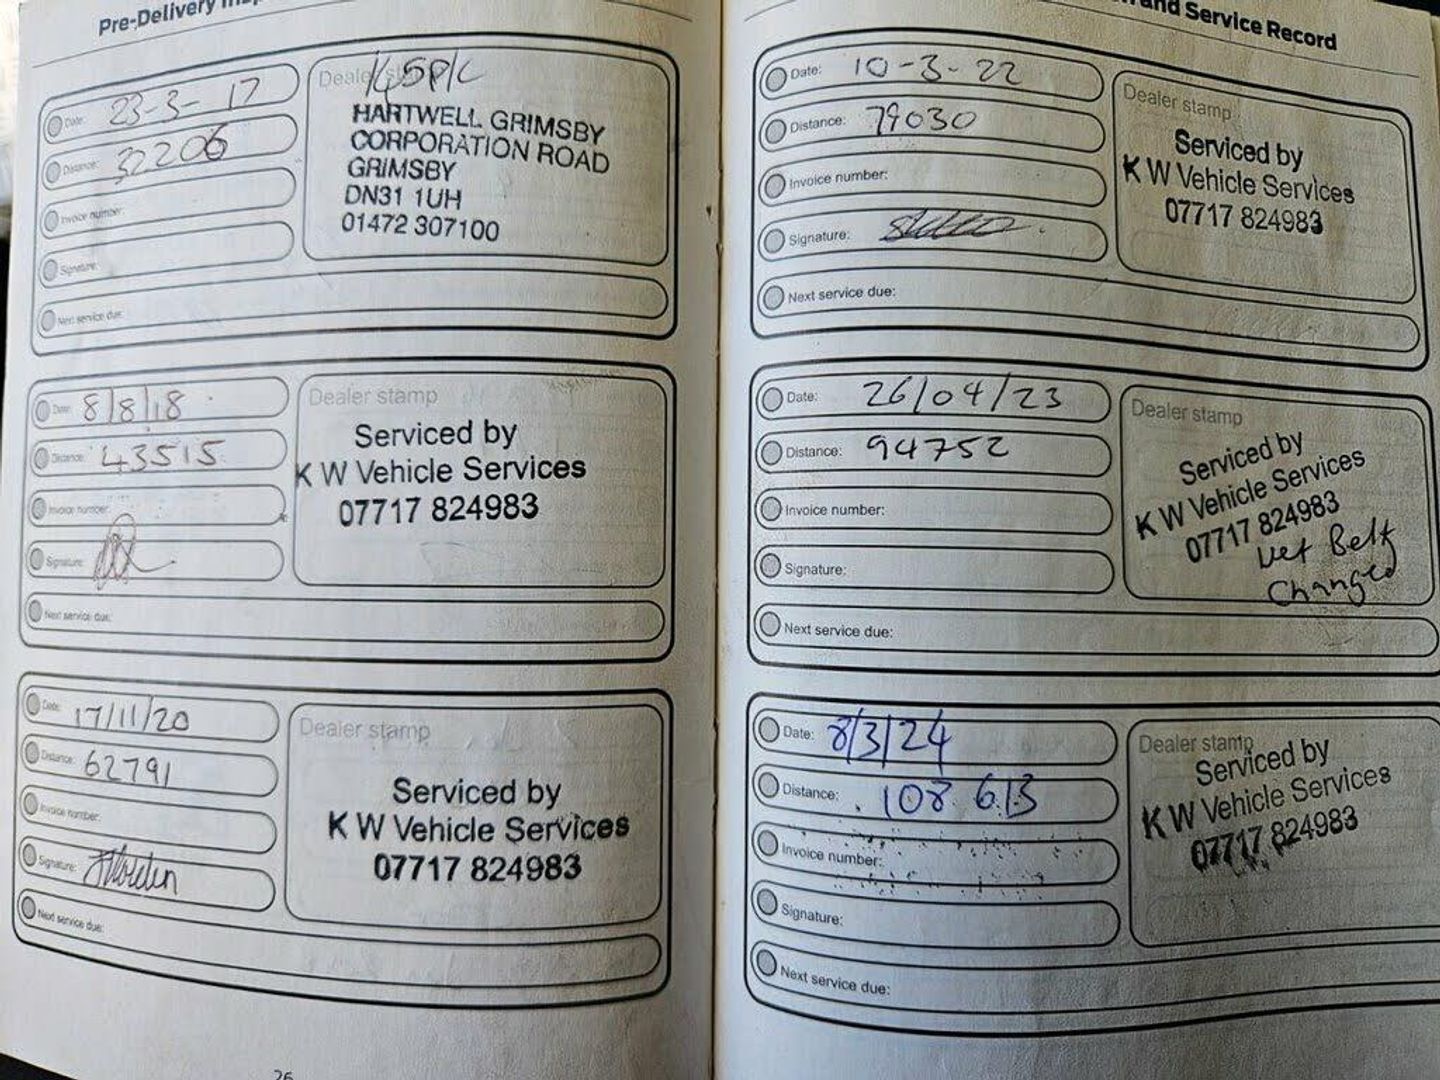 Pre-Delivery
Date: 23-3-17
Distance: 32206
Invoice number:
Signature:
Next service due:
Dealer stamp
HARTWELL GRIMSBY
CORPORATION ROAD
GRIMSBY
DN31 1UH
01472 307100
Date: 8/8/18
Distance: 43515
Invoice number:
Signature:
Next service due:
Dealer stamp
Serviced by
K W Vehicle Services
07717 824983
Date: 17/11/20
Distance: 62791
Invoice number:
Signature:
Next service due:
Dealer stamp
Serviced by
K W Vehicle Services
07717 824983
26
and Service Record
Date: 10-3-22
Distance: 79030
Invoice number:
Signature:
Next service due:
Dealer stamp
Serviced by
K W Vehicle Services
07717 824983
Date: 26/04/23
Distance: 94752
Invoice number:
Signature:
Next service due:
Dealer stamp
Serviced by
K W Vehicle Services
07717 824983
Wet Belt
Changed
Date: 8/3/24
Distance: 108613
Invoice number:
Signature:
Next service due:
Dealer stamp
Serviced by
K W Vehicle Services
07717 824983